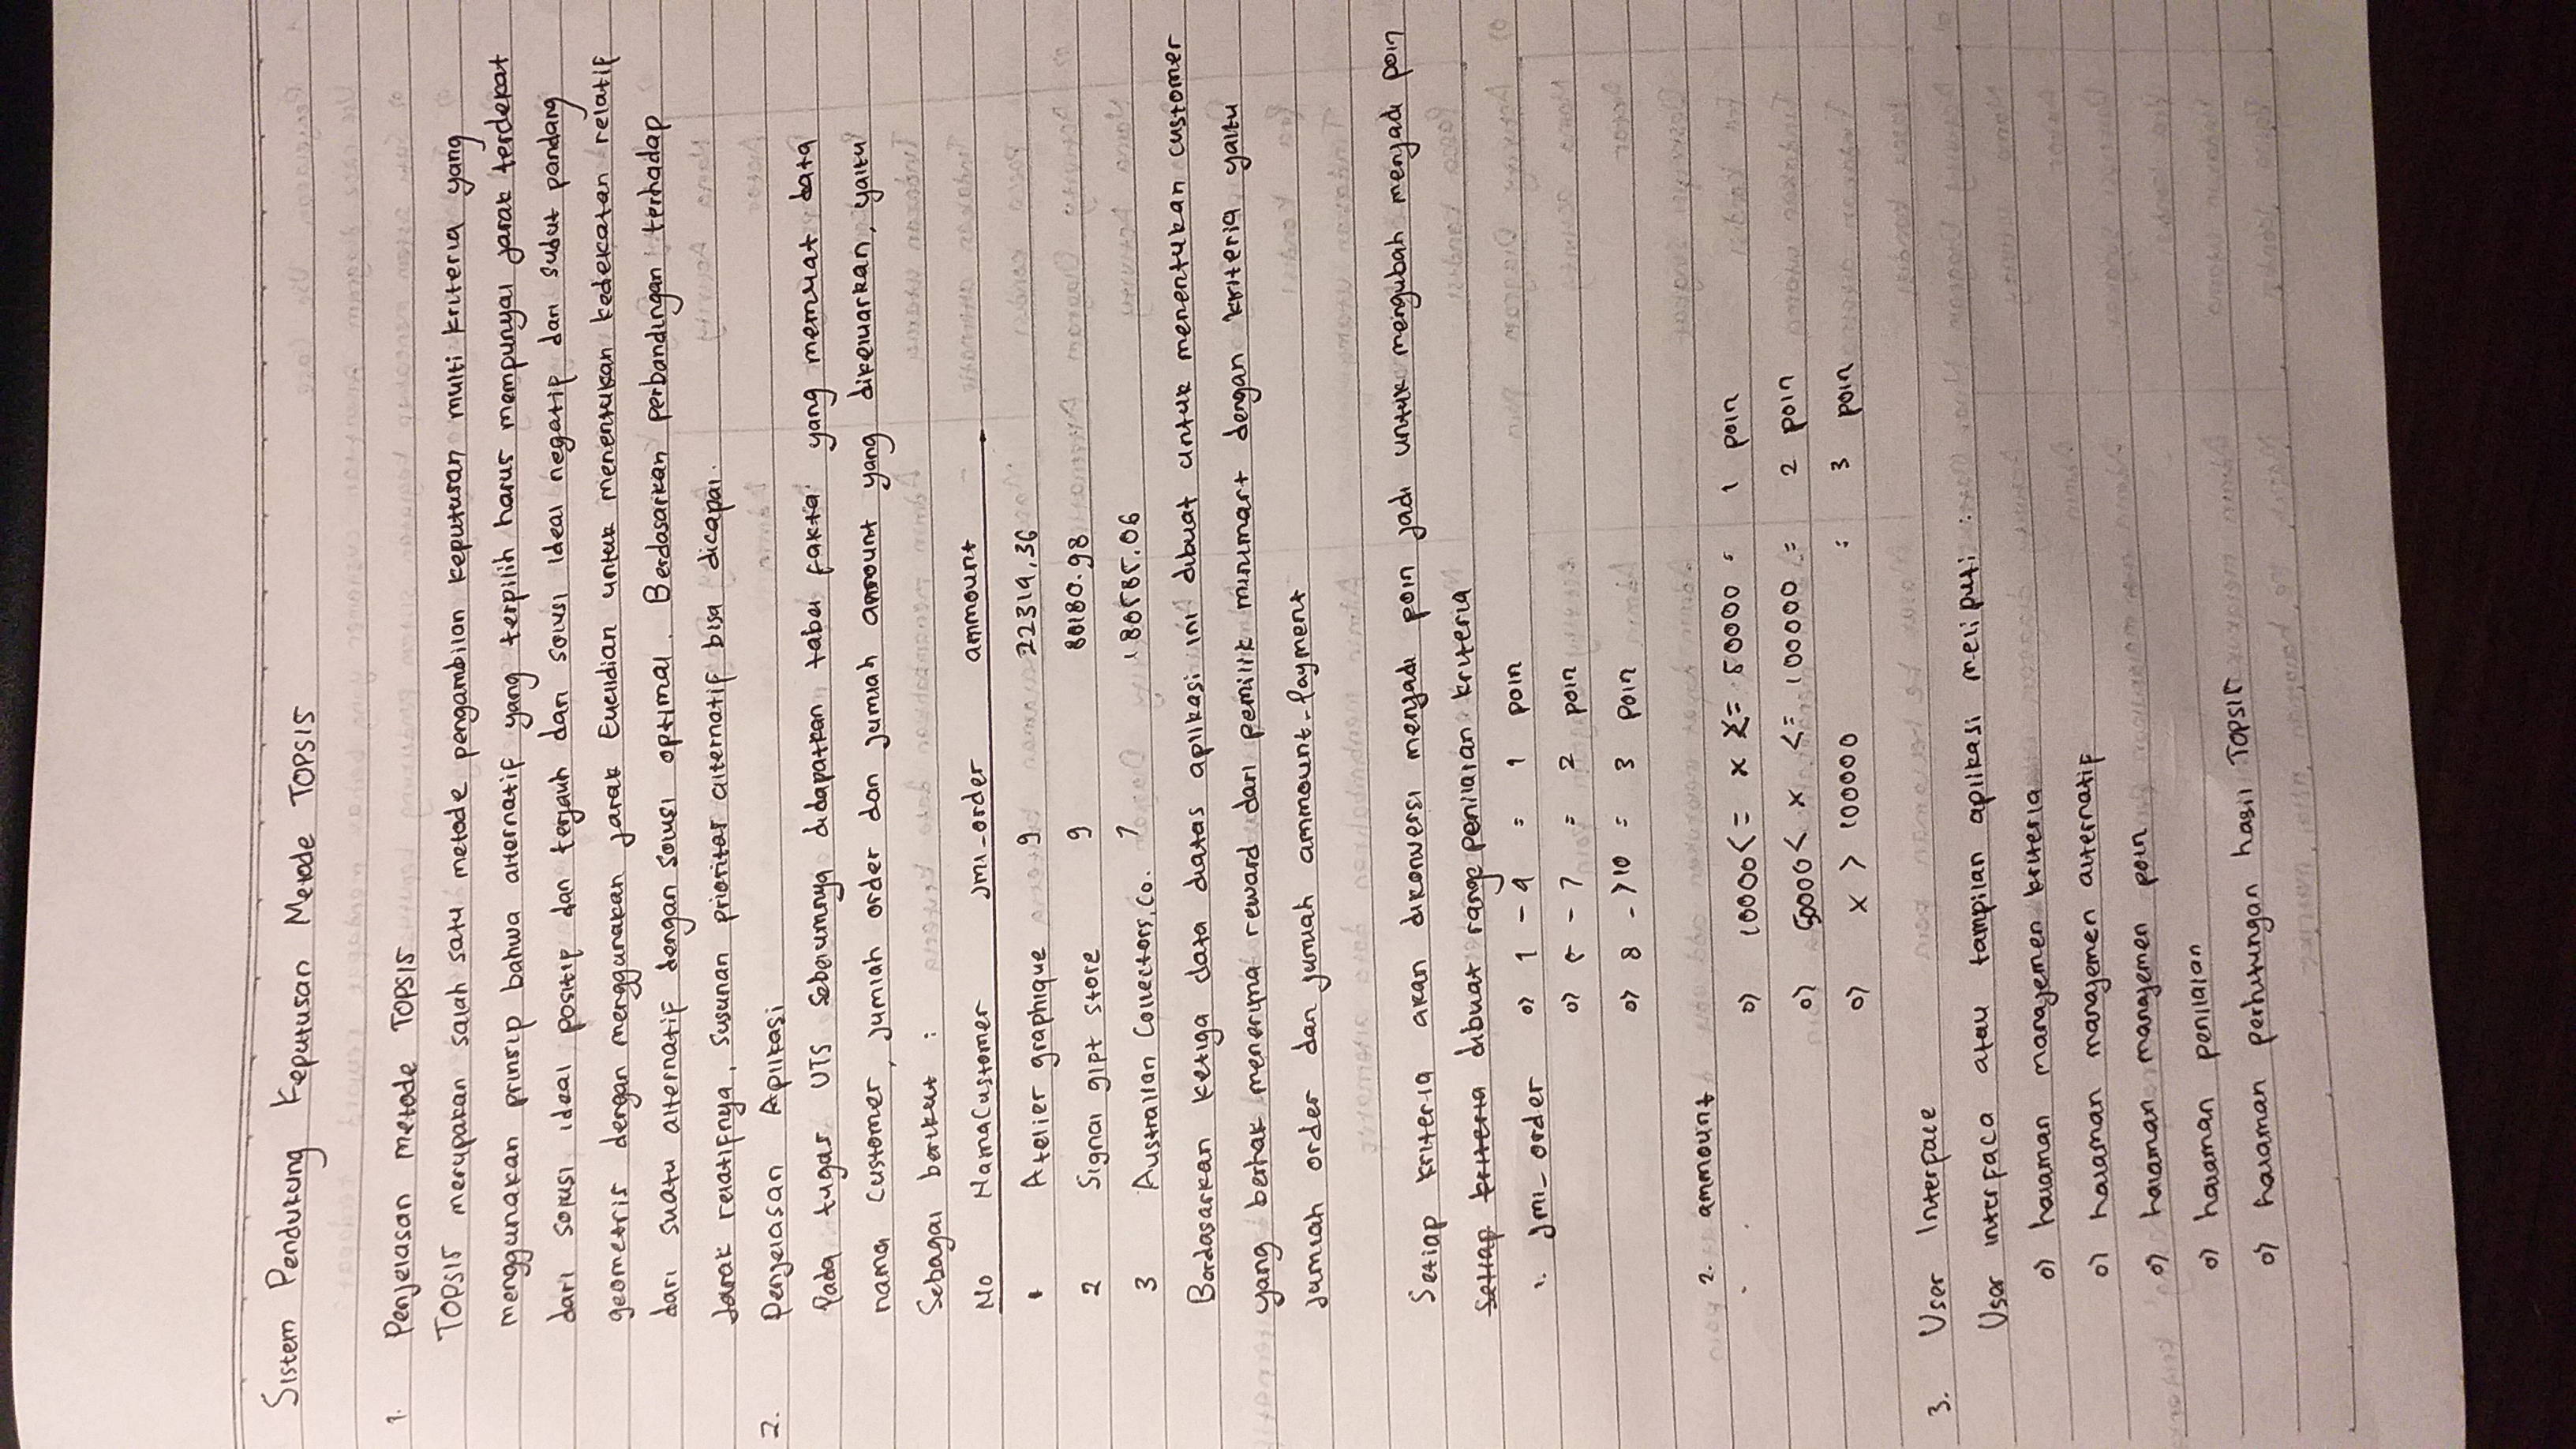 Sistem Pendukung Keputusan Metode TOPSIS
1. Penjelasan metode TOPSIS
TOPSIS merupakan salah satu metode pengambilan keputusan multi kriteria yang
menggunakan prinsip bahwa alternatif yang terpilih harus mempunyai jarak terdekat
dari solusi ideal positif dan terjauh dari solusi ideal negatif dari sudut pandang
geometris dengan menggunakan jarak Euclidian untuk menentukan kedekatan relatif
dari suatu alternatif dengan solusi optimal. Berdasarkan perbandingan terhadap
Jarak relatifnya, susunan prioritas alternatif bisa dicapai.
2. Penjelasan Aplikasi
Pada tugas UTS sebelumnya didapatkan tabel fakta yang memuat data
nama customer, jumlah order dan jumlah amount yang dikeluarkan, yaitu
Sebagai berikut :
No NamaCustomer Jml_order ammount
1 Atelier graphique 9 22314,36
2 Signal gift store 9 80180.98
3 Australian Collectors, Co. 7 180585.06
Berdasarkan ketiga data diatas aplikasi ini dibuat untuk menentukan customer
yang berhak menerima reward dari pemilik minimart dengan kriteria yaitu
Jumlah order dan jumlah ammount_Payment
Setiap kriteria akan dikonversi menjadi poin jadi untuk mengubah menjadi poin
Setiap kriteria dibuat range penilaian kriteria
1. Jml_order o) 1 - 4 = 1 poin
o) 5 - 7 = 2 poin
o) 8 - >10 = 3 poin
2. ammount
o) 10000 <= x <= 50000 = 1 poin
o) 50000 < x <= 100000 = 2 poin
o) x > 100000 = 3 poin
3. User Interface
User interfaca atau tampilan aplikasi meliputi :
o) halaman manajemen kriteria
o) halaman manajemen alternatif
o) halaman manajemen poin
o) halaman penilaian
o) halaman perhitungan hasil TOPSIS